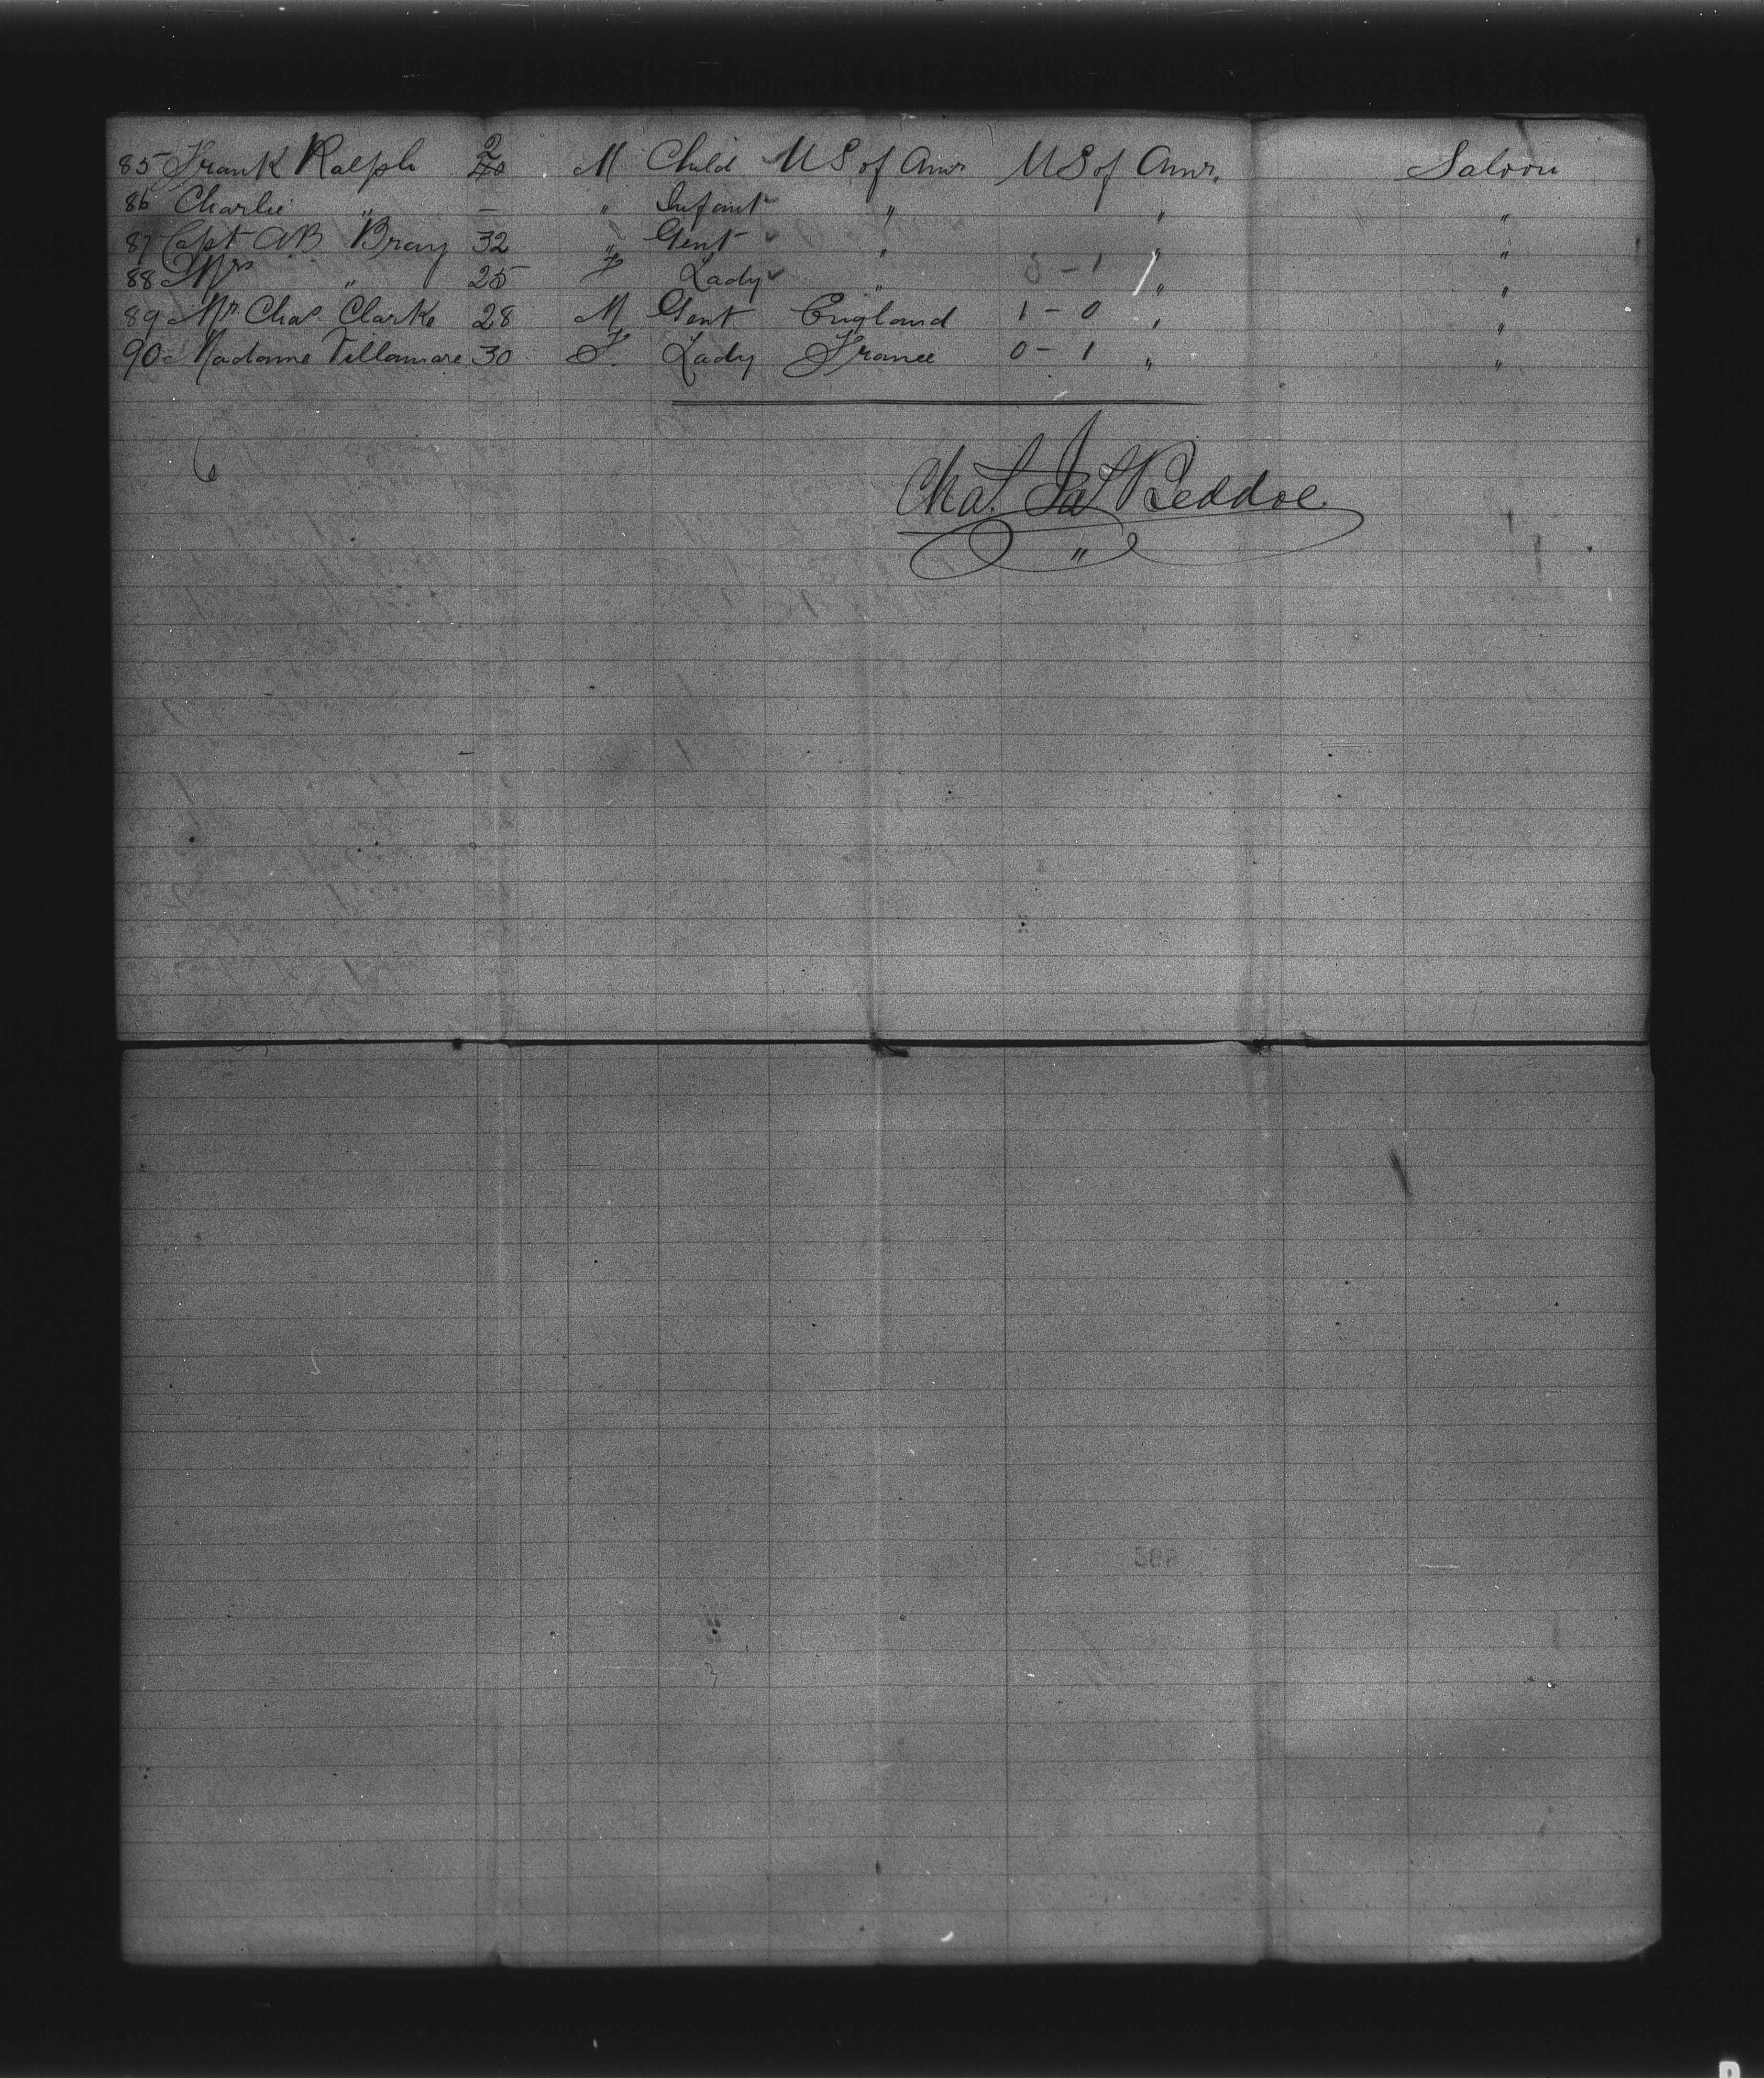 85 Frank Ralph 2 M Child U S of Amr U S of Amr. Saloon
86 Charlie " — " Infant " " "
87 Capt AB Bray 32 " Gent " " "
88 Mrs " 25 F Lady " 0 - 1 " "
89 Mr Chas. Clarke 28 M Gent England 1 - 0 " "
90 Madame Villamare 30 F. Lady France 0 - 1 " "
Chas. Jas Beddoe.
"